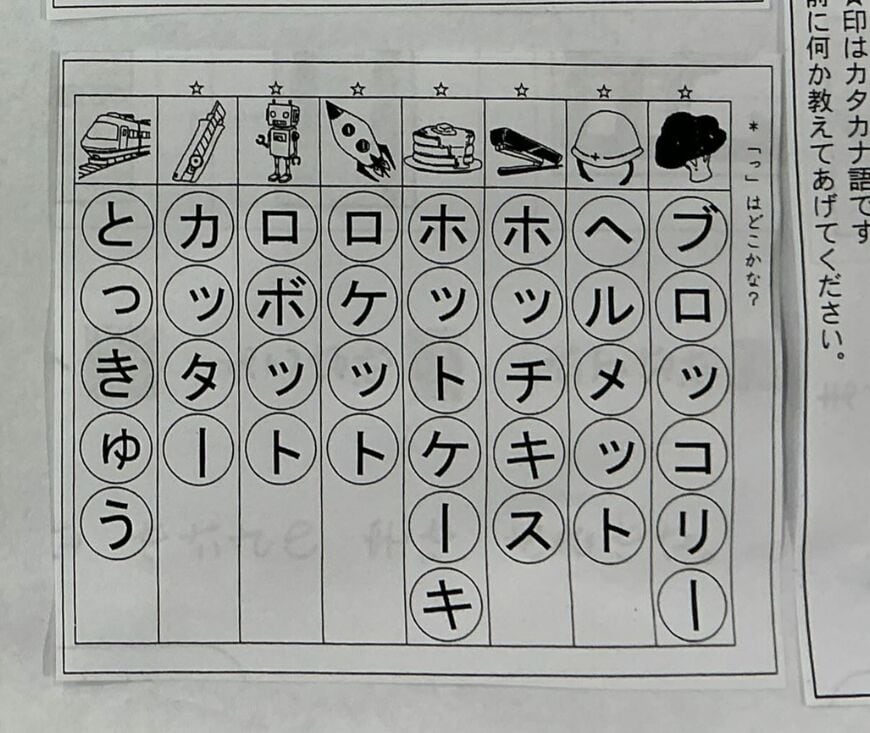 ☆印はカタカナ語です
前に何か教えてあげてください。
*「っ」はどこかな?
☆
ブロッコリー
☆
ヘルメット
☆
ホッチキス
☆
ホットケーキ
☆
ロケット
☆
ロボット
☆
カッター
とっきゅう